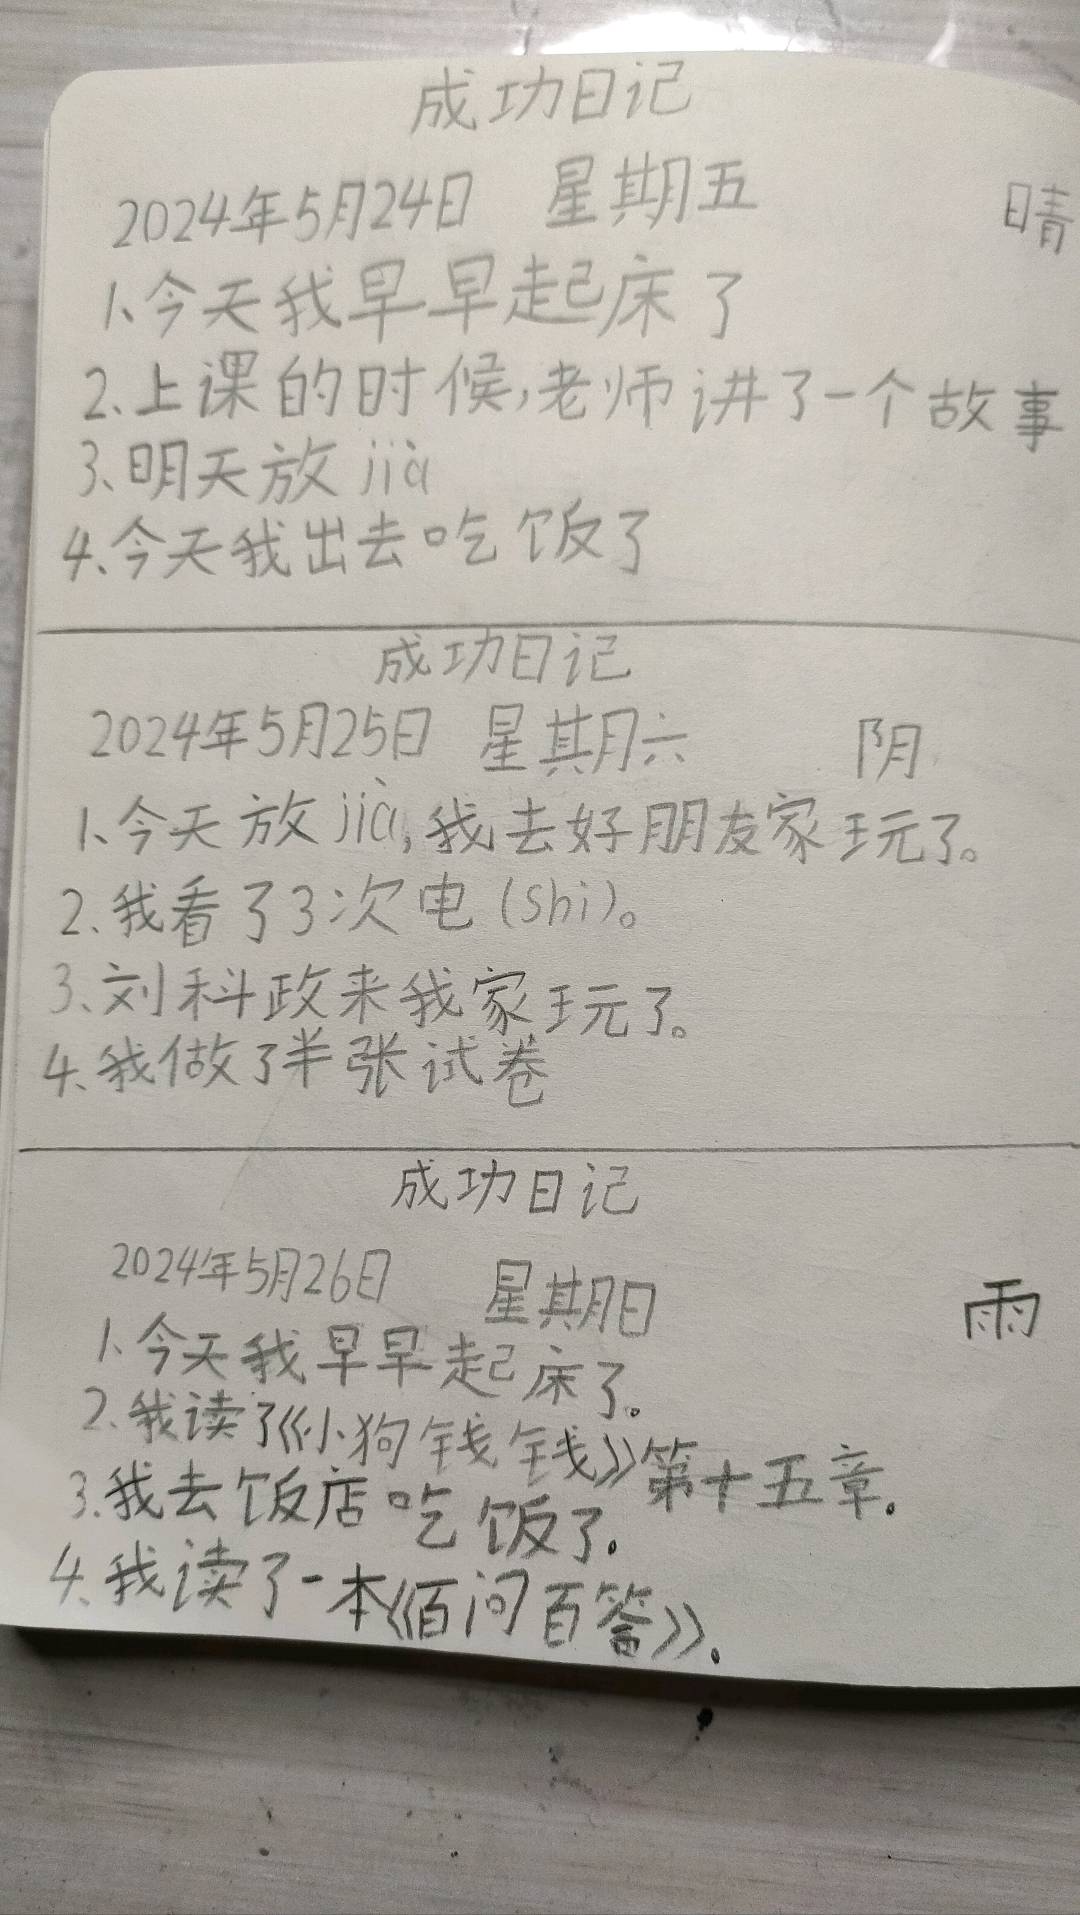 成功日记
2024年5月24日 星期五 晴
1、今天我早早起床了
2、上课的时候,老师讲了一个故事
3、明天放jià
4、今天我出去吃饭了
成功日记
2024年5月25日 星期六 阴
1、今天放jià,我去好朋友家玩了。
2、我看了3次电(shi)。
3、刘科政来我家玩了。
4、我做了半张试卷
成功日记
2024年5月26日 星期日 雨
1、今天我早早起床了。
2、我读了《小狗钱钱》第十五章.
3.我去饭店吃饭了.
4、我读了一本《百问百答》。